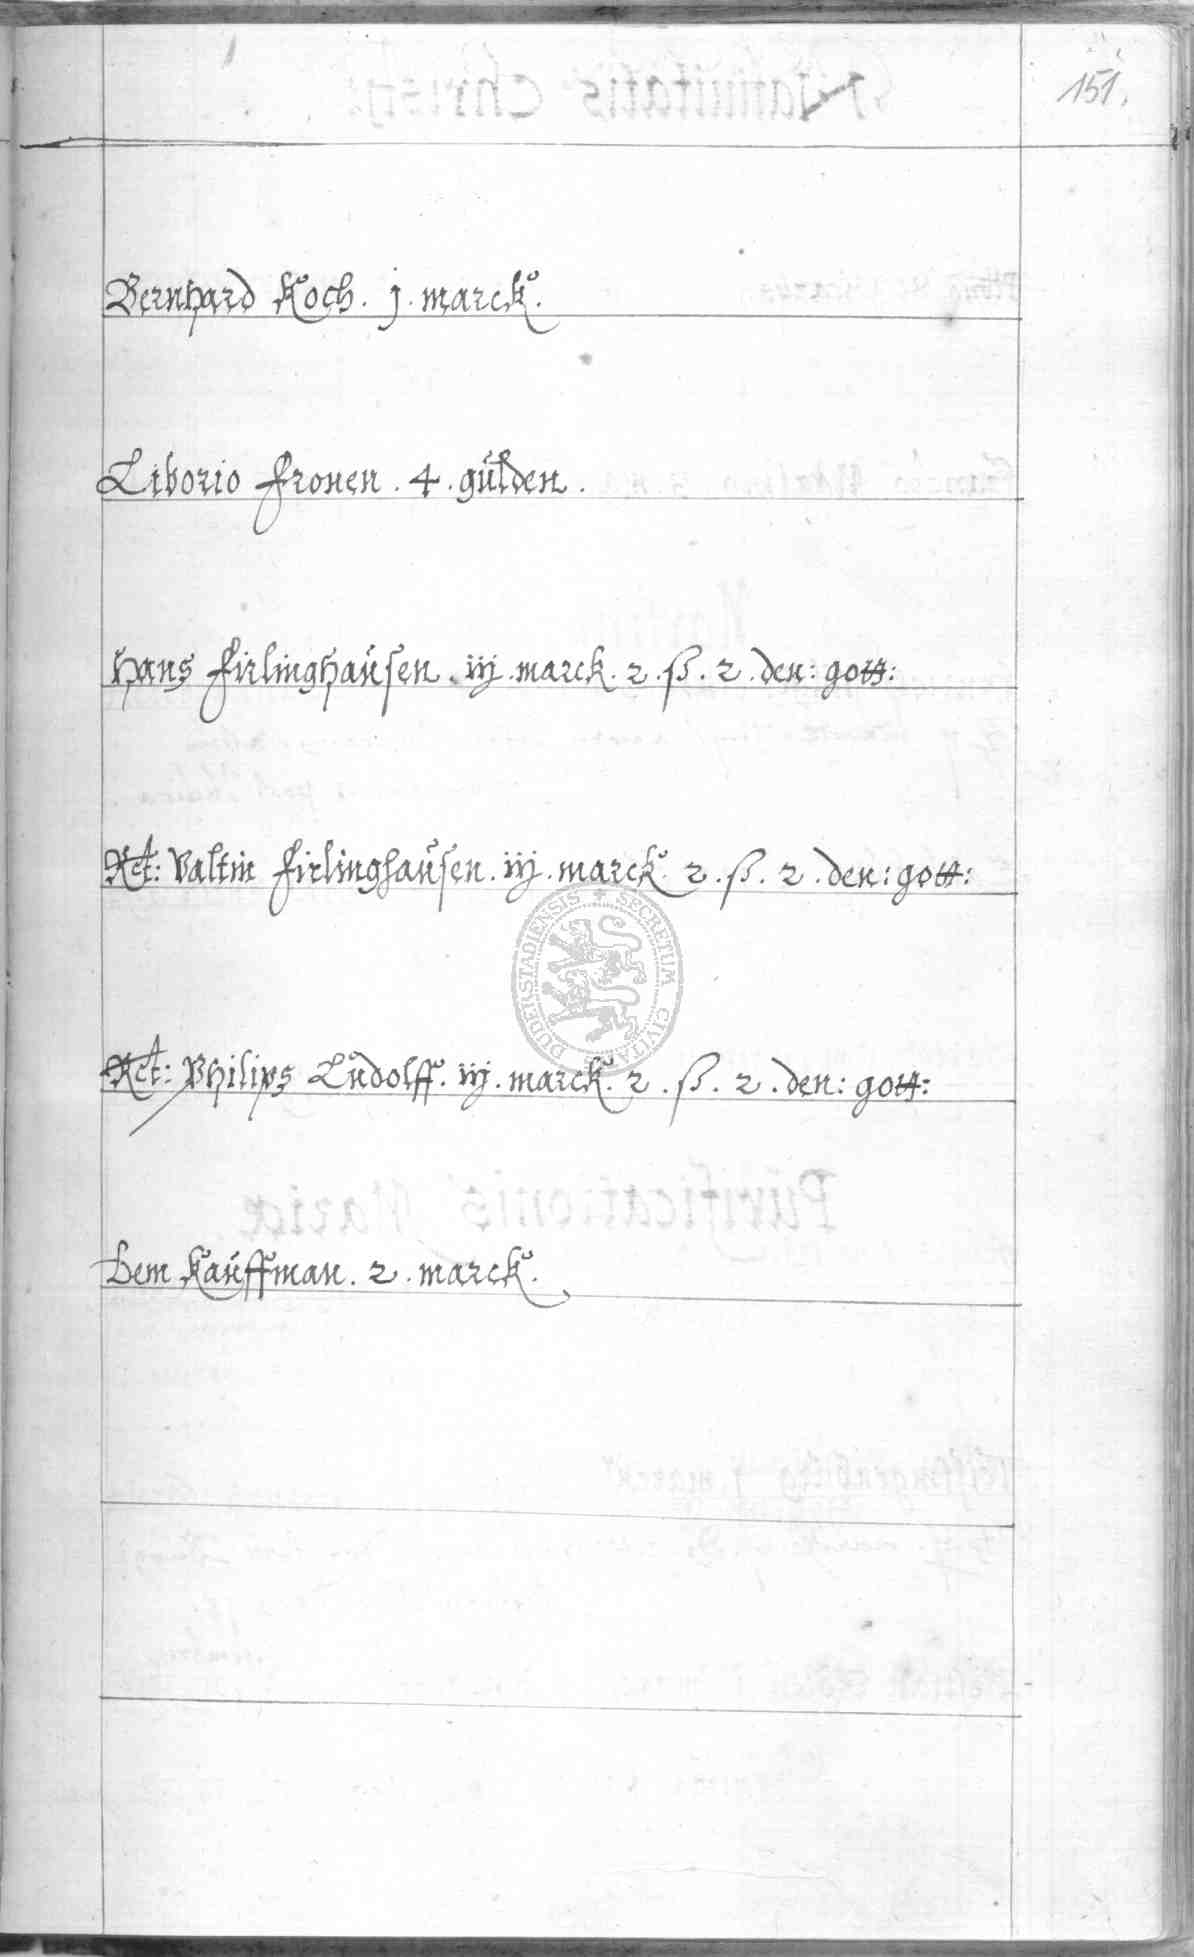 151.
Bernhard Koch. j. marck.
Liborio Fronen. 4. gülden.
Hans Firlinghausen. iij. marck. 2. ß. 2. den: gott:
Rct: Valtin Firlinghausen. iij. marck. 2. ß. 2. den: gott:
DUDERSTADIENSIS SECRETUM CIVITA
Rct: Philips Ludolff. iij. marck. 2. ß. 2. den: gott:
Dem Kauffman. 2. marck.